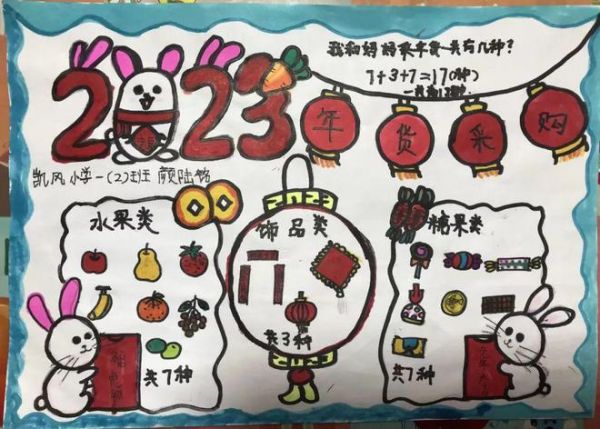 2023
我和妈妈采年货一共有几种?
7+3+7=17(种)
年货采购
凯风小学一(2)班 颜陆铭
水果类
共7种
饰品类
2023
共3种
2023
糖果类
共7种
福